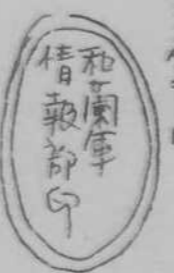 和蘭軍
情報部印